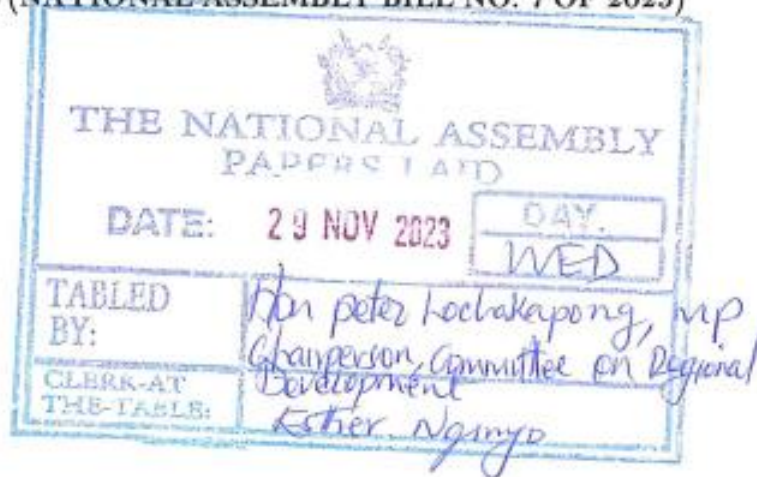 (NATIONAL ASSEMBLY BILL NO. 7 OF 2023)
THE NATIONAL ASSEMBLY
PAPERS LAID
DATE: 29 NOV 2023
DAY.
WED
TABLED BY:
Hon peter Lochakapong, MP
Chairperson, Committee on Regional
Development
CLERK-AT THE-TABLE:
Esther